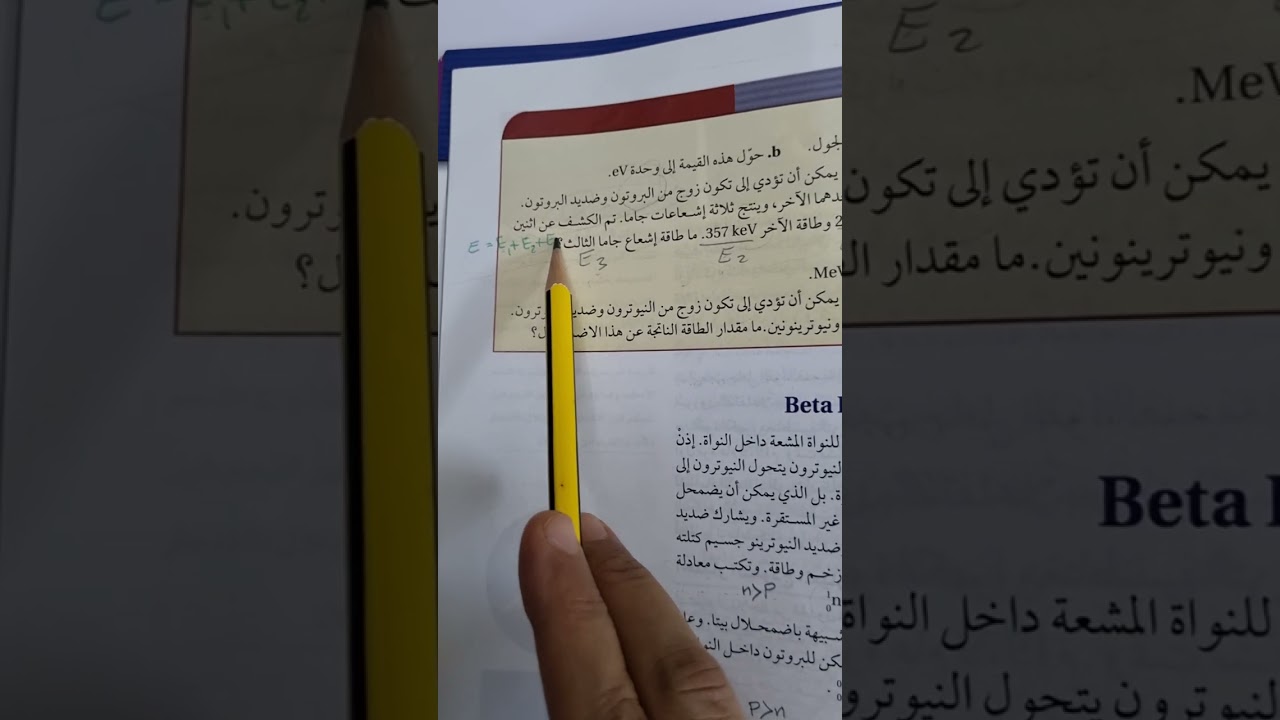 E₂
b. حوّل هذه القيمة إلى وحدة eV.
يمكن أن تؤدي إلى تكون زوج من البروتون وضديد البروتون.
الآخر، وينتج ثلاثة إشعاعات جاما. تم الكشف عن اثنين
وطاقة الآخر 357 keV. ما طاقة إشعاع جاما الثالث؟
E = E₁ + E₂ + E
E₃
E₂
يمكن أن تؤدي إلى تكون زوج من النيوترون وضديد
ونيوترينونين. ما مقدار الطاقة الناتجة عن هذا
Beta
للنواة المشعة داخل النواة. إذنْ
النيوترون يتحول النيوترون إلى
بل الذي يمكن أن يضمحل
غير المستقرة. ويشارك ضديد
ضديد النيوترينو جسيم كتلته
زخم وطاقة. وتكتب معادلة
n>P
¹₀n
شبيهة باضمحلال بيتا.
للبروتون داخل
P>n
.MeV
يمكن أن تؤدي إلى تكون
ونيوترينونين. ما مقدار
Beta
للنواة المشعة داخل النواة